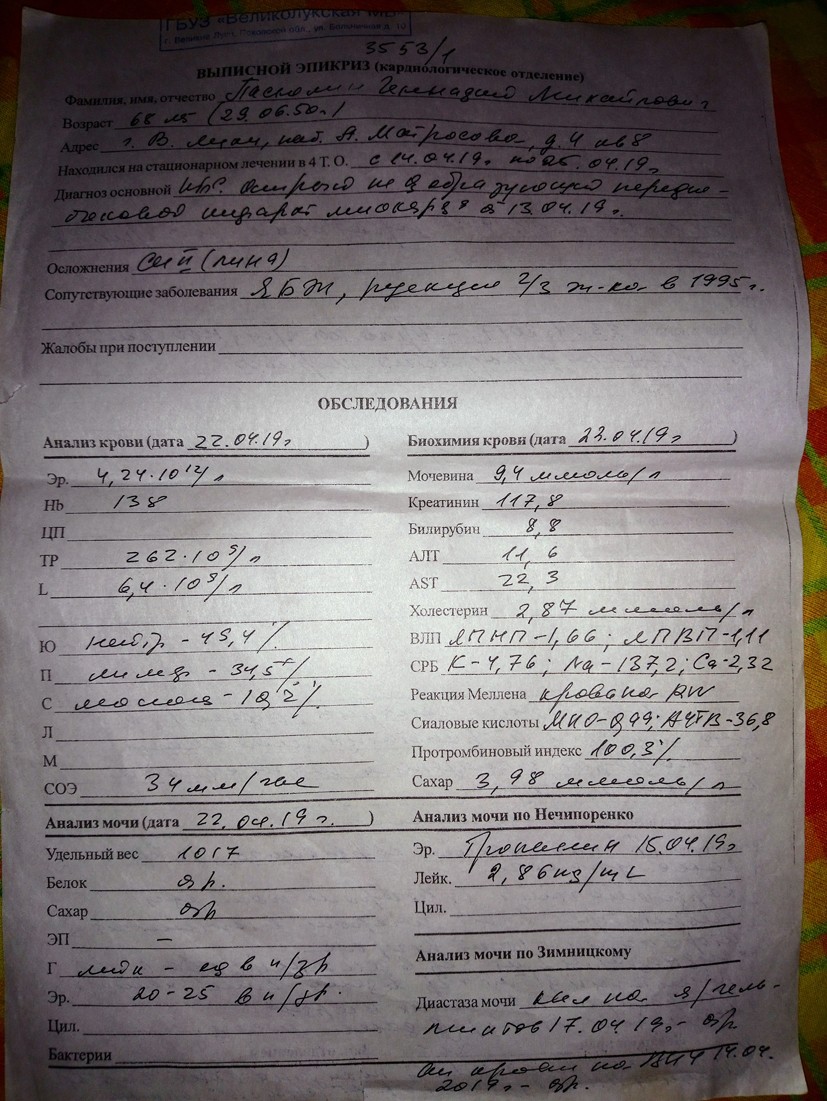 ГБУЗ «Великолукская МБ»
г. Великие Луки, Псковской обл., ул. Больничная д. 10
3553/1
ВЫПИСНОЙ ЭПИКРИЗ (кардиологическое отделение)
Фамилия, имя, отчество Геннадий Михайлович
Возраст 68 (29.06.50г)
Адрес г. В. Луки, наб. А. Матросова, д. 4 кв 8
Находился на стационарном лечении в 4 Т. О. с 14.04.19г по 25.04.19г
Диагноз основной ИБС. Острый не Q образующий передне-
боковой инфаркт миокарда от 13.04.19г.
Осложнения СН II
Сопутствующие заболевания ЯБЖ, резекция 2/3 ж-ка в 1995г.
Жалобы при поступлении
ОБСЛЕДОВАНИЯ
Анализ крови (дата 22.04.19г )
Эр. 4,24·10¹²/л
Hb 138
ЦП
ТР 262·10⁹/л
L 6,4·10⁹/л
Ю нейтр -
П лимф - 34,5%
С моноц -
Л
М
СОЭ 34 мм/час
Биохимия крови (дата 23.04.19г )
Мочевина 9,4 ммоль/л
Креатинин 117,8
Билирубин 8,8
АЛТ 11,6
AST 22,3
Холестерин 2,87 ммоль/л
ВЛП ЛПНП-1,66; ЛПВП-1,11
СРБ K-4,76; Na-137,2; Ca-2,32
Реакция Меллена кровь на RW
Сиаловые кислоты МНО-0,99; АЧТВ-36,8
Протромбиновый индекс 100,3%
Сахар 3,98 ммоль/л
Анализ мочи (дата 22.04.19г. )
Удельный вес 1017
Белок отр.
Сахар отр
ЭП —
Г лейк - ед в п/зр
Эр. 20-25 в п/зр.
Цил.
Бактерии
Анализ мочи по Нечипоренко
Эр. Тропонин 15.04.19г
Лейк. 2,86
Цил.
Анализ мочи по Зимницкому
Диастаза мочи кал на я/гель-
минтов 17.04.19г- отр
Ан крови на ВИЧ 14.04.
2019г - отр.